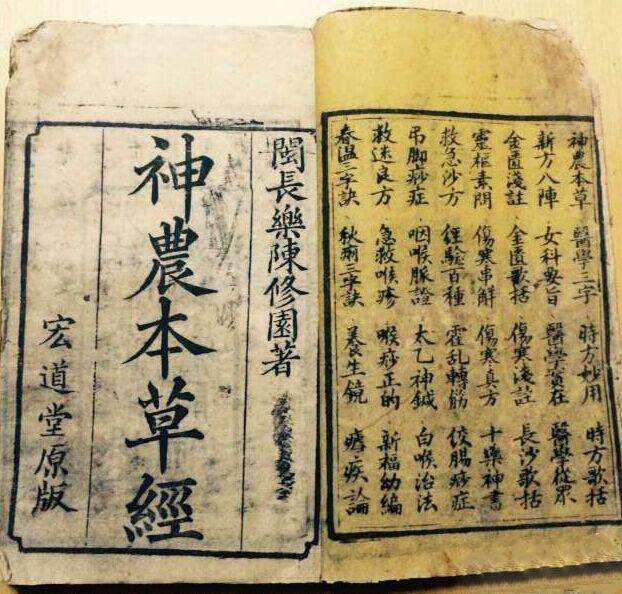 神農本草 醫學三字 時方妙用 時方歌括
新方八陣 女科要旨 醫學實在 醫學從眾
金匱淺註 金匱歌括 傷寒淺註 長沙歌括
靈樞素問 傷寒串解 傷寒真方 十藥神書
救急沙方 經驗百種 霍乱轉筋 腸痧症
吊脚痧症 咽喉脈證 太乙神鍼 白喉治法
救迷良方 急救喉疹 喉痧正的 新福幼編
春温三字訣 秋三字訣 養生鏡 瘧疾論
閩長樂陳修園著
神農本草經
宏道堂原版